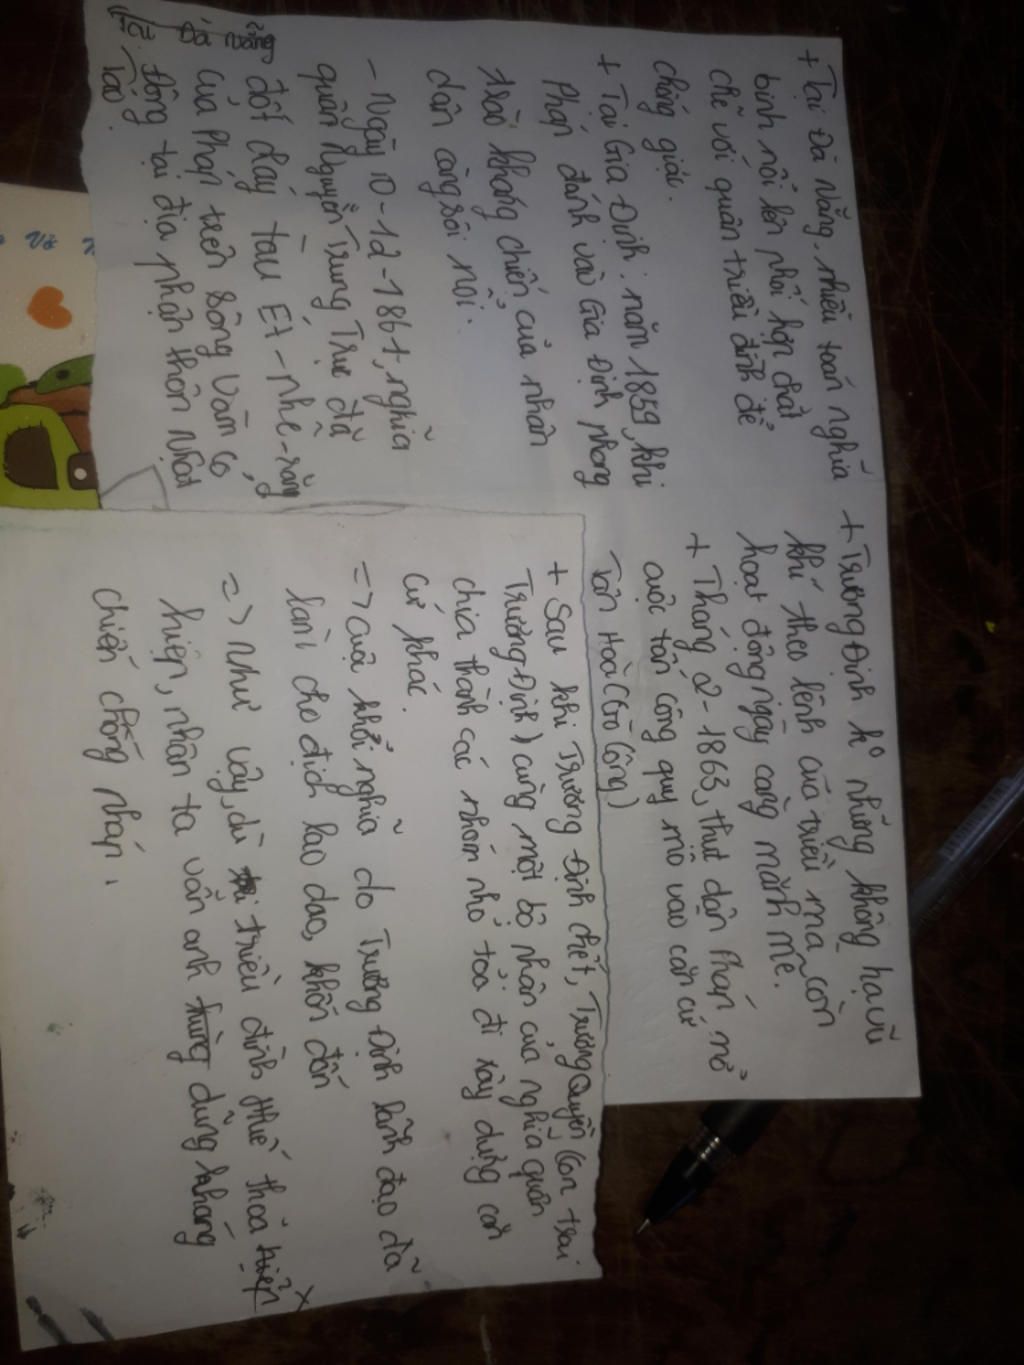 + Tại Đà Nẵng, nhiều toán nghĩa
binh nổi lên phối hợp chặt
chẽ với quân triều đình để
chống giặc.
+ Tại Gia Định: năm 1859, khi
Pháp đánh vào Gia Định phong
trào kháng chiến của nhân
dân càng sôi nổi.
- Ngày 10-12-1861, nghĩa
quân Nguyễn Trung Trực đã
đốt cháy tàu Ét-Phê-răng
của Pháp trên sông Vàm Cỏ
Đông tại địa phận thôn Nhật
Tảo.
Đà nẵng
+ Trương Định k° những không hạ vũ
khí theo lệnh của triều mà còn
hoạt động ngày càng mãnh mẽ.
+ Tháng 2-1863, thực dân Pháp nổ
cuộc tấn công quy mô vào căn cứ
Tân Hoà (Gò Công)
+ Sau khi Trương Định chết, Trương Quyền (con trai
Trương Định) cùng một bộ phận của nghĩa quân
chia thành các nhóm nhỏ toả đi xây dựng căn
cứ khác.
=> cuộc khởi nghĩa do Trương Định lãnh đạo đã
làm cho địch lao đao, khốn đốn
=> Như vậy, dù triều đình Huế thoả hiệp
hiện, nhân ta vẫn anh dũng kháng
chiến chống Pháp.